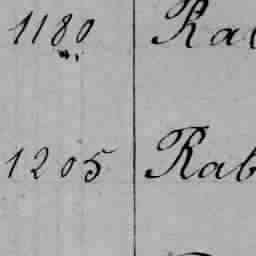 1180 Rab
1205 Rab